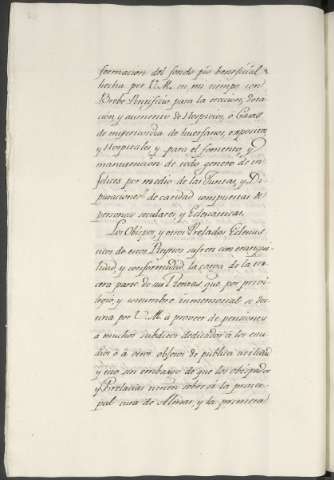 formacion del fondo pio beneficial
hecha por V.M. en mi tiempo con
Brebe Pontificio para la ereccion, dota
cion y aumento de Hospicios, o Casas
de misericordia de huerfanos, expositos
y Hospitales, y para el fomento y
manutencion de todo genero de in
felices por medio de las Juntas, y Di
putaciones de caridad compuestas de
personas seculares y Eclesiasticas.
Los Obispos, y otros Prelados Eclesias
ticos de estos Reynos sufren con tranqui
lidad, y conformidad la carga de la ter
cera parte de sus Rentas que por privi
legio, y costumbre inmemorial se des
tina por V.M. à proveer de pensiones
à muchos subditos dedicados à los estu
dios ò à otros objetos de publica utilidad
y esto sin embargo de que los obispados
y Prelacias tienen sobre sì la princi
pal cura de Almas, y la primera